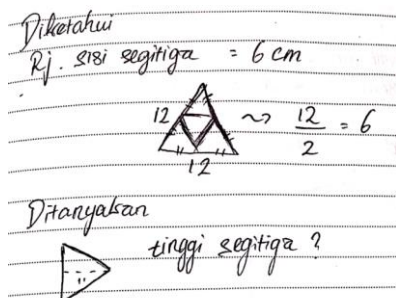 Diketahui
Pj. sisi segitiga = 6 cm
12 ~> 12/2 = 6
12
Ditanyakan
tinggi segitiga ?